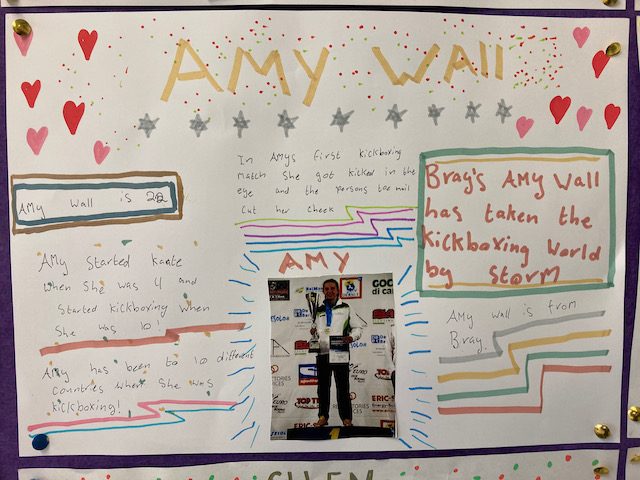 AMY WAll
AMy Wall is 22
In AMys first kickboxing
match She got kicked in the
eye and the persons toe nail
Cut her cheek
Bray's AMy Wall
has taken the
kickboxing World
by storm
AMy Started karate
when She was 4 and
Started kickboxing when
She was 10!
AMy has been to 10 different
countries when She was
kickboxing!
AMY
AMy Wall is from
Bray.
GOC
di car
TOP TEN
ERIC-S